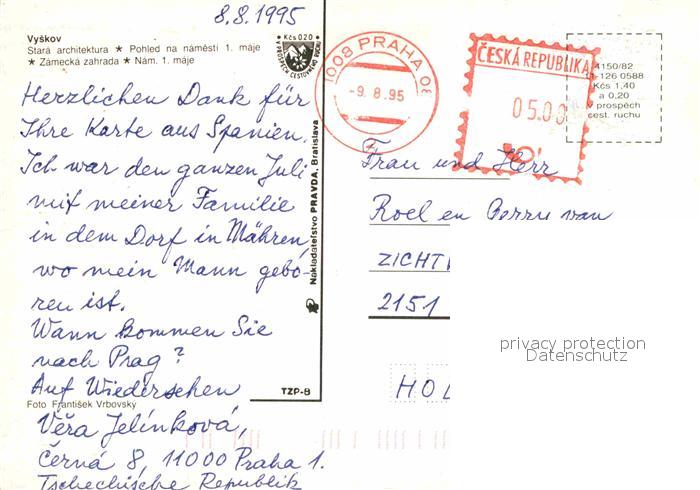 8.8.1995
Vyškov
Stará architektura ★ Pohled na náměstí 1. máje
★ Zámecká zahrada ★ Nám. 1. máje
Kčs 0.20
V PROSPĚCH CESTOVNÍHO RUCHU
Herzlichen Dank für
Ihre Karte aus Spanien.
Ich war den ganzen Juli
mit meiner Familie
in dem Dorf in Mähren,
wo mein Mann gebo-
ren ist.
Wann kommen Sie
nach Prag?
Auf Wiedersehen
Foto František Vrbovský
Věra Jelínková,
Černá 8, 11000 Praha 1.
Tschechische Republik
Nakladatelstvo PRAVDA, Bratislava
TZP-8
1008 PRAHA 08
-9.8.95
ČESKÁ REPUBLIKA
05.00
4150/82
1 126 0588
Kčs 1,40
a 0,20
v prospěch
cest. ruchu
Frau und Herr
Roel en Berry van
ZICHT
2151
HOL
privacy protection
Datenschutz